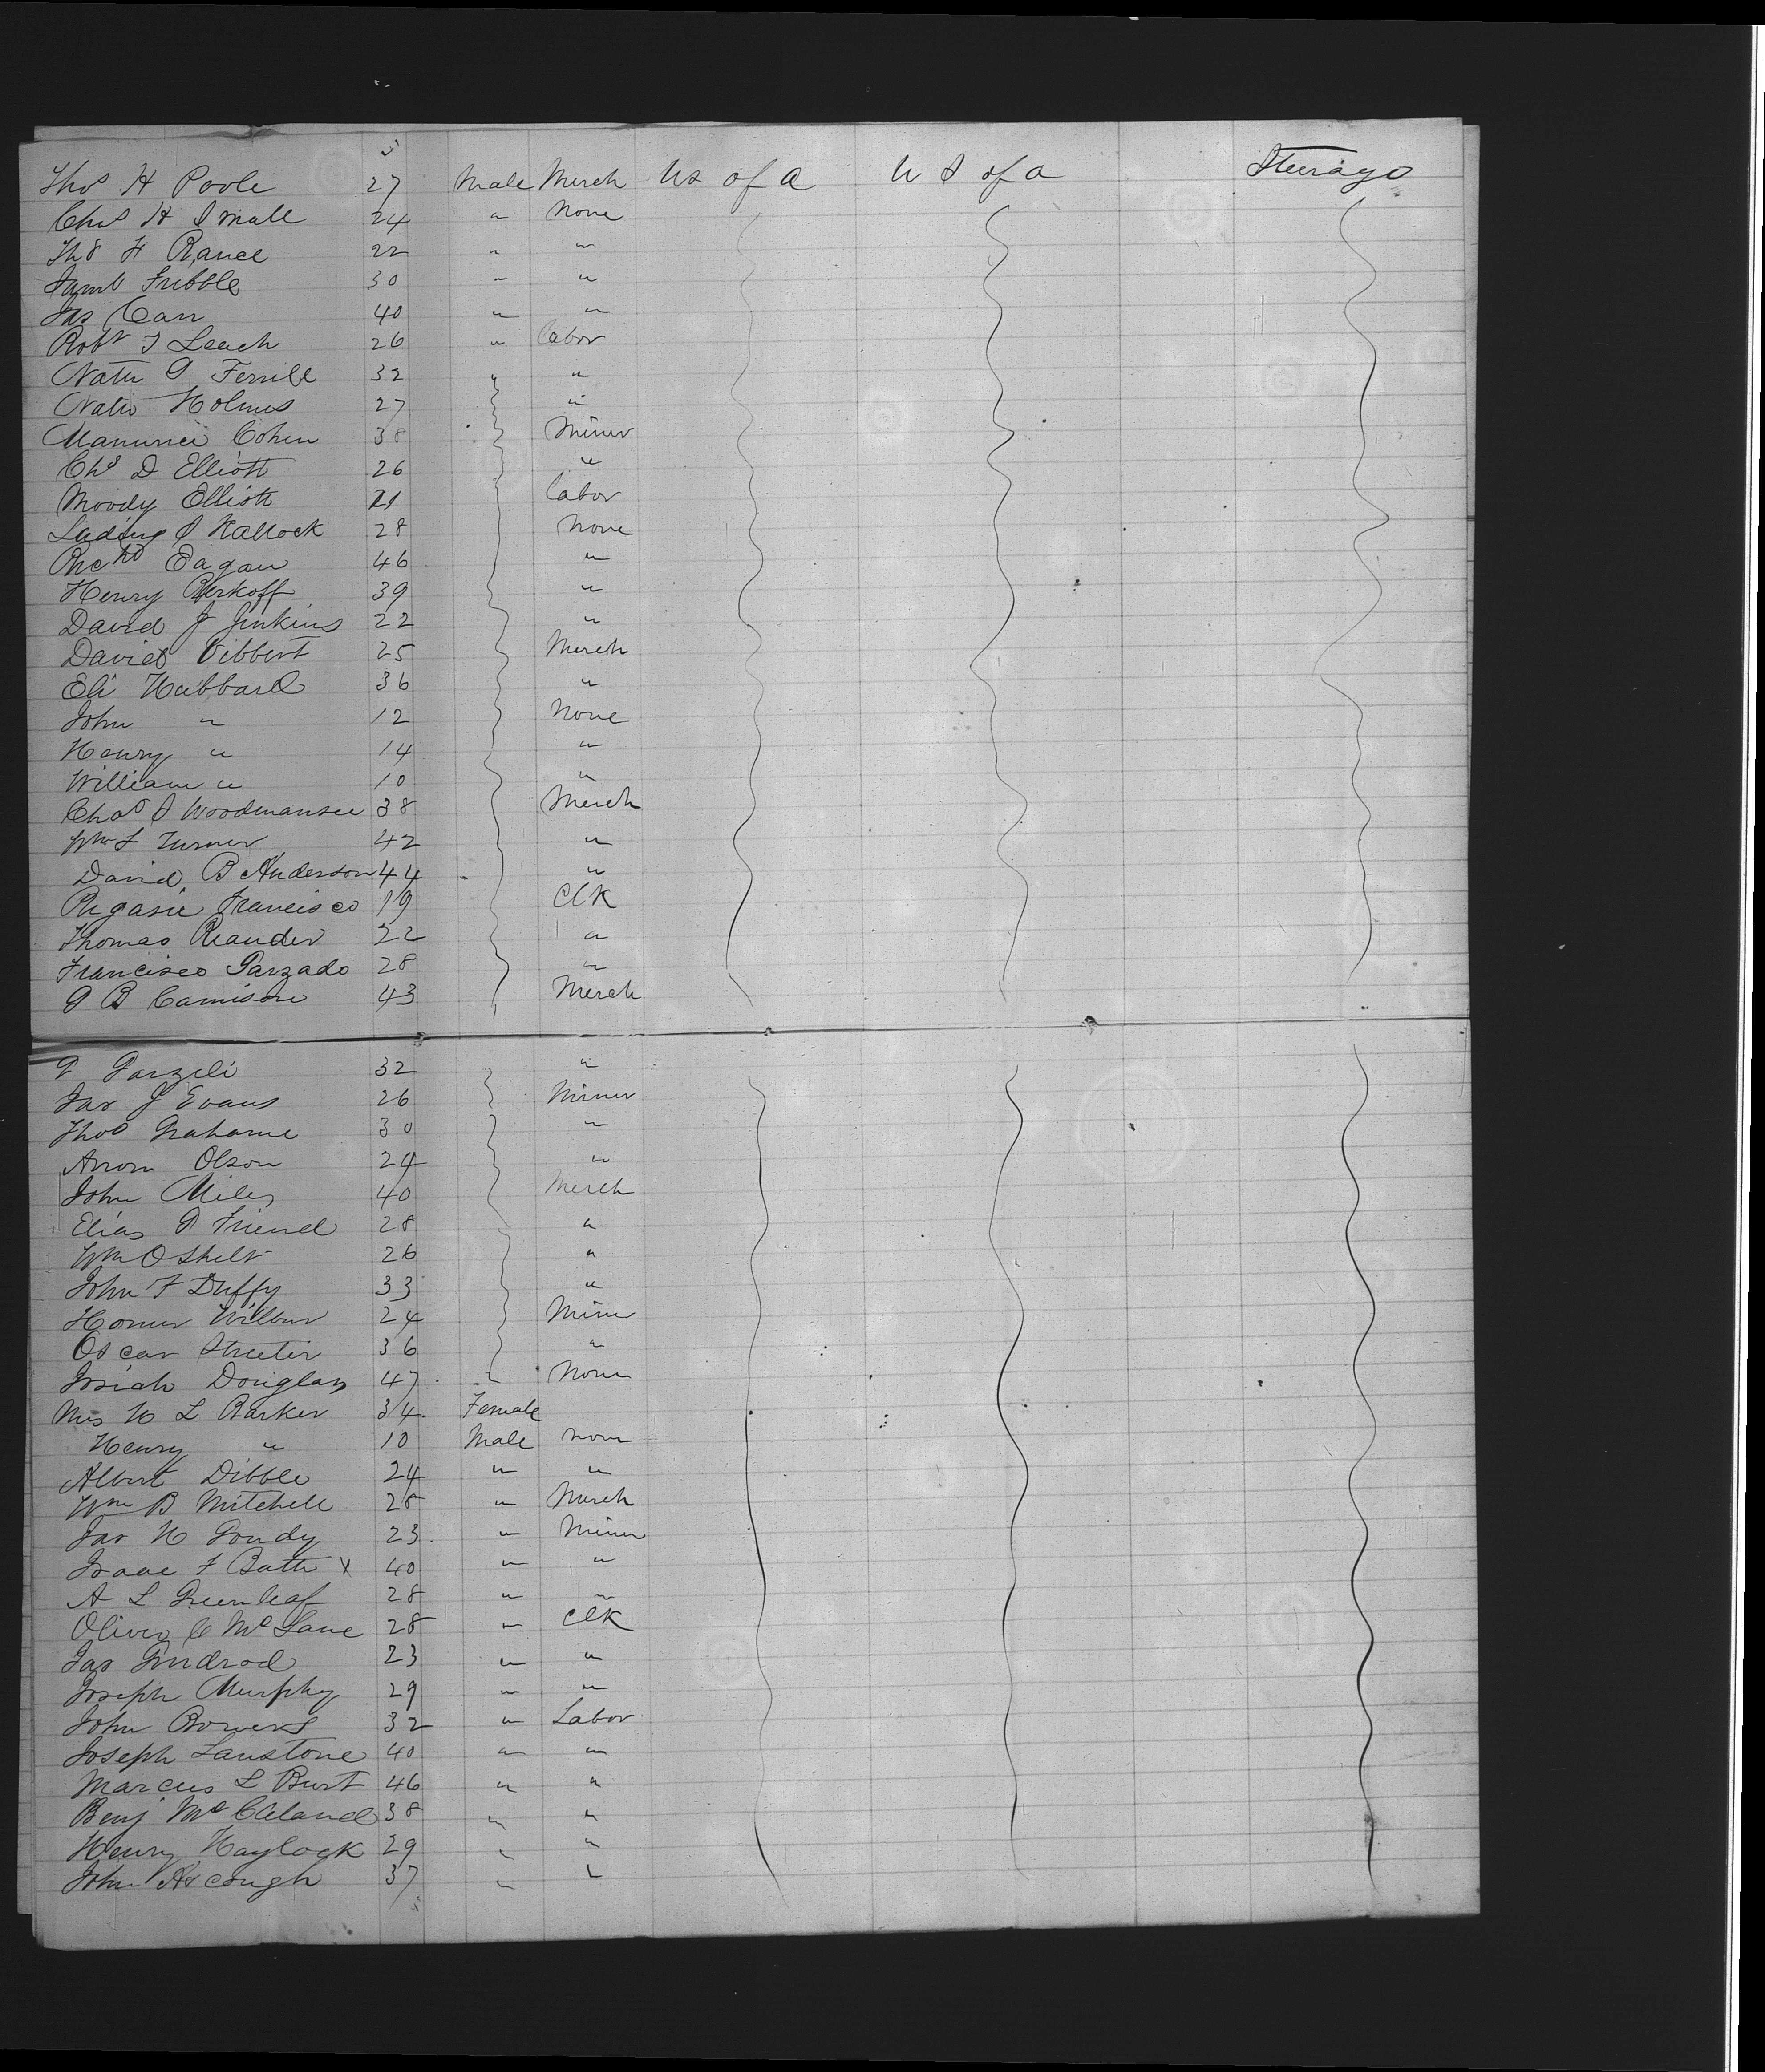 Thos H Poole 27 Male Merch US of A U S of A Steerage
Chs H Small 24 " None
Ths H Rance 22 " "
Saml Tribble 30 " "
Jas Carr 40 " "
Robt T Leach 26 " labor
Nathl G Ferrill 32 " "
Nath Holmes 27 "
Cohen 38 Miner
Chs D Elliott 26 "
Moody Elliott 21 labor
S Kallock 28 None
Richd Eagan 46 "
Henry Berkoff 39 "
David J Jenkins 22 "
David Vibbert 25 Merch
Eli Hubbard 36 "
John " 12 None
Henry " 14 "
William " 10 "
Chas S Woodmansee 38 Merch
Wm L Turner 42 "
David B Anderson 44 "
Francisco 19 Clk
Thomas Reander 22 "
Francisco Garzado 28 "
G B Camison 43 Merch
G Garzeli 32 "
Jas J Evans 26 Miner
Thos Grahame 30 "
Arron Olson 24 "
John Miles 40 Merch
Elias G Friend 28 "
Wm O Shelt 26 "
John F Duffy 33 "
Homer Wilbur 24 Miner
Oscar Streeter 36 "
Josiah Douglass 47 None
Mrs H L Barker 34 Female
Henry " 10 Male None
Albert Dibble 24 " "
Wm B Mitchell 28 " Merch
Jas H Goudy 23 " Miner
Isaac F Batte x 40 " "
A L Greenleaf 28 " "
Oliver C McLane 28 " Clk
Jas Gindrod 23 " "
Joseph Murphy 29 " "
John Bowers 32 " Labor
Joseph Lanstone 40 " "
Marcus L Burt 46 " "
Benj McCleland 38 " "
Henry Haylock 29 " "
John Ascough 37 " "